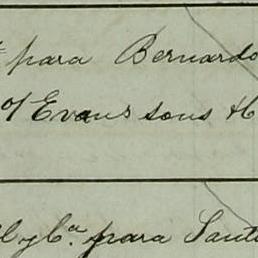 para Bernardo
o/ Evans sons & C
y Ca. para Santi